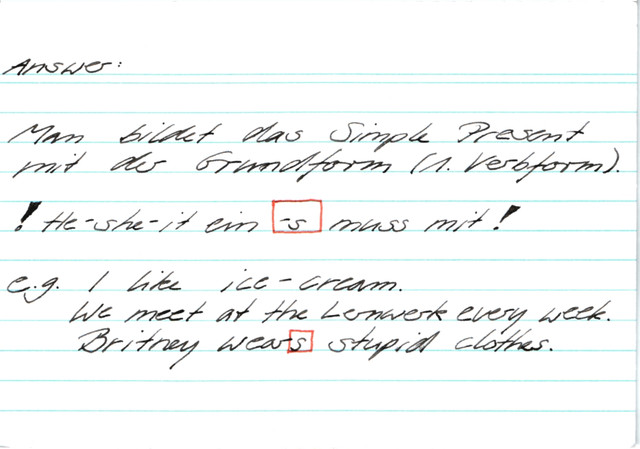 Answer:
Man bildet das Simple Present
mit der Grundform (1. Verbform).
! He-she-it ein -s muss mit!
e.g. I like ice-cream.
We meet at the Lernwerk every week.
Britney wears stupid clothes.